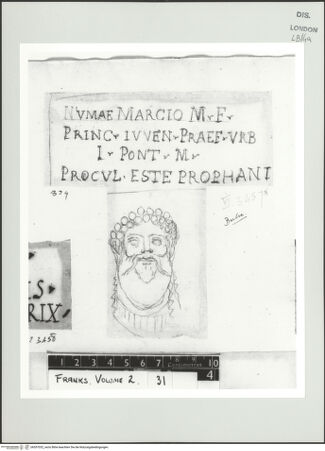 DIS.
LONDON
NVMAE MARCIO M·F·
PRINC· IVVEN· PRAEF·VRB
I· PONT· M·
PROCVL· ESTE PROPHANI
S·
RIX·
1 2 3 4 5 6 7 8 9 10
Centimetres
FRANKS, VOLUME 2. 31
4